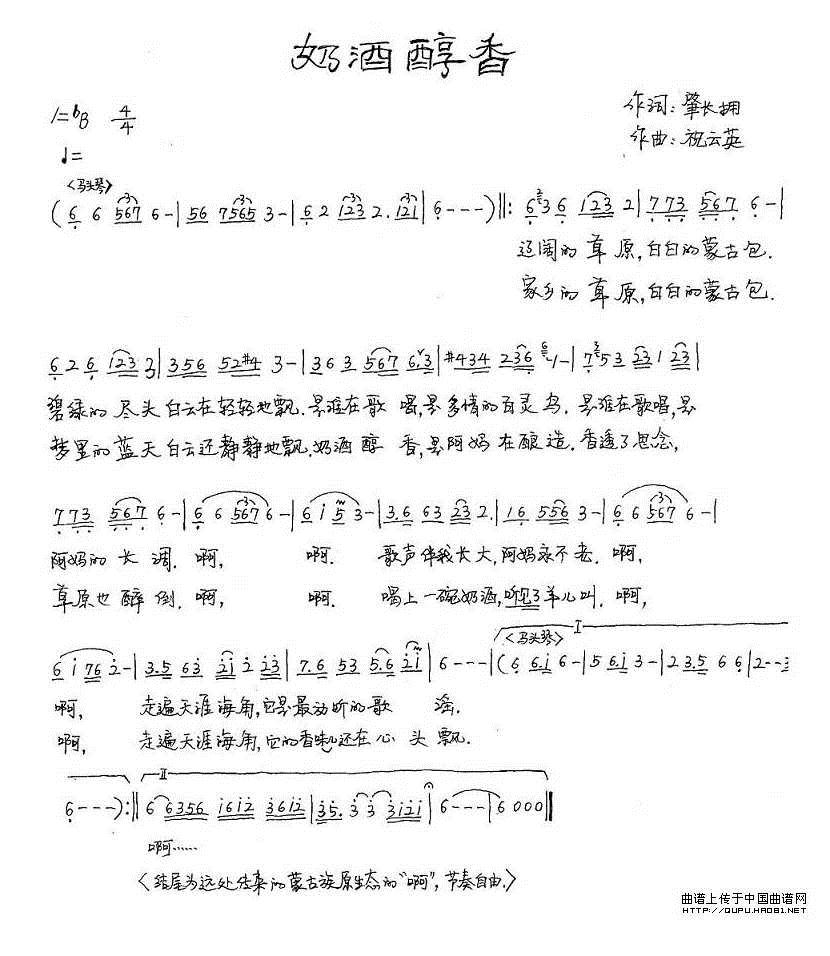 奶酒醇香
1=♭B 4/4
作词：肇长拥
作曲：祝云英
♩=
<马头琴>
(6 6 567 6-|56 7565 3-|6 2 123 2. 121|6---)‖: 6 3 6 123 2|773 567 6-|
辽阔的草原,白白的蒙古包.
家乡的草原,白白的蒙古包.
6 2 6 123 3|356 52#4 3-|36 3 567 6.3|#434 236 1-|7 53 231 23|
碧绿的尽头白云在轻轻地飘.是谁在歌唱,是多情的百灵鸟.是谁在歌唱,是
梦里的蓝天白云还静静地飘.奶酒醇香,是阿妈在酿造.香透了思念,
773 567 6-|6 6 567 6-|6 i 5 3-|3.6 63 23 2.|16 556 3-|6 6 567 6-|
阿妈的长调.啊,啊.歌声伴我长大,阿妈永不老.啊,
草原也醉倒.啊,啊.喝上一碗奶酒,听见了羊儿叫.啊,
I
<马头琴>
6 i 76 2-|3.5 63 2i 2 23|7.6 53 5.6 2i|6---|(6 6.i 6-|5 6.i 3-|2 3.5 6 6|2--
啊,走遍天涯海角,它是最动听的歌谣.
啊,走遍天涯海角,它的香味儿还在心头飘.
II
6---):‖6 6356 i6i2 36i2|35. 3 3 3i2i|6---|6000‖
啊……
<结尾为远处传来的蒙古族原生态的“啊”,节奏自由.>
曲谱上传于中国曲谱网
HTTP://QUPU.HAO81.NET